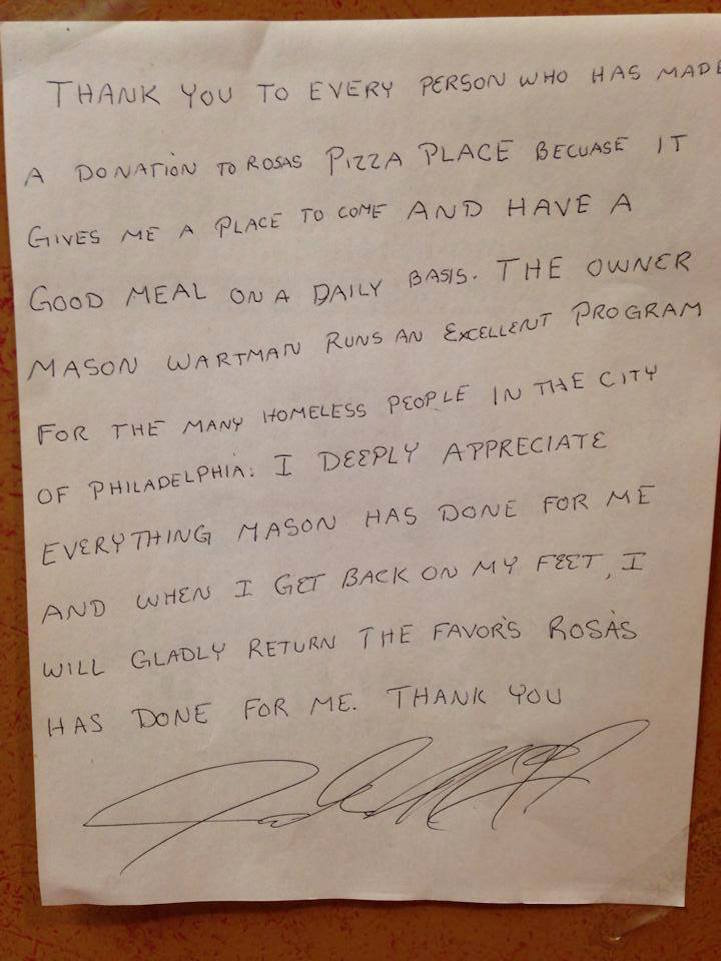 THANK YOU TO EVERY PERSON WHO HAS MADE
A DONATION TO ROSAS PIZZA PLACE BECUASE IT
GIVES ME A PLACE TO COME AND HAVE A
GOOD MEAL ON A DAILY BASIS. THE OWNER
MASON WARTMAN RUNS AN EXCELLENT PROGRAM
FOR THE MANY HOMELESS PEOPLE IN THE CITY
OF PHILADELPHIA. I DEEPLY APPRECIATE
EVERYTHING MASON HAS DONE FOR ME
AND WHEN I GET BACK ON MY FEET, I
WILL GLADLY RETURN THE FAVOR'S ROSA'S
HAS DONE FOR ME. THANK YOU